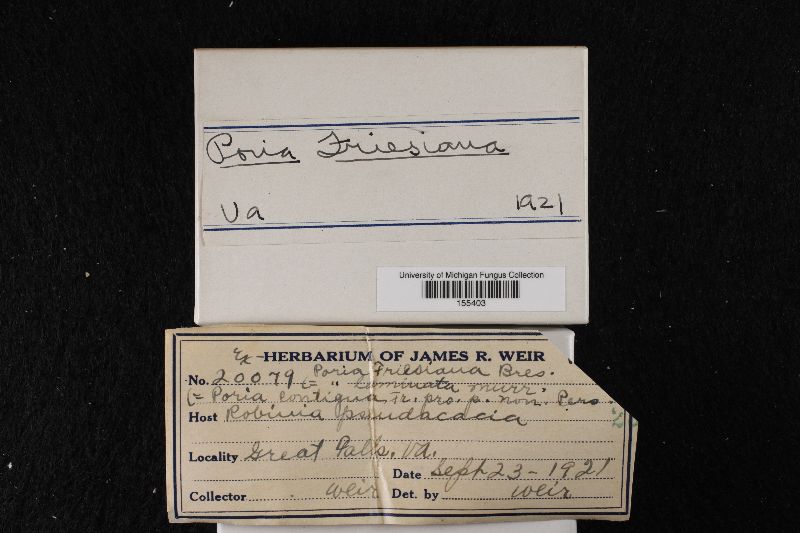 Poria Friesiana
Va 1921
University of Michigan Fungus Collection
155403
Ex HERBARIUM OF JAMES R. WEIR
No. 20079 Poria Friesiana Bres.
(= " laminata Murr.
(= Poria contigua Fr. pro. p. non. Pers.
Host Robinia pseudacacia
Locality Great Falls, Va.
Date Sept 23-1921
Collector Weir Det. by Weir